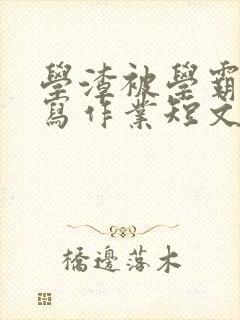 學渣被學霸
寫作業短文
橋邊落木